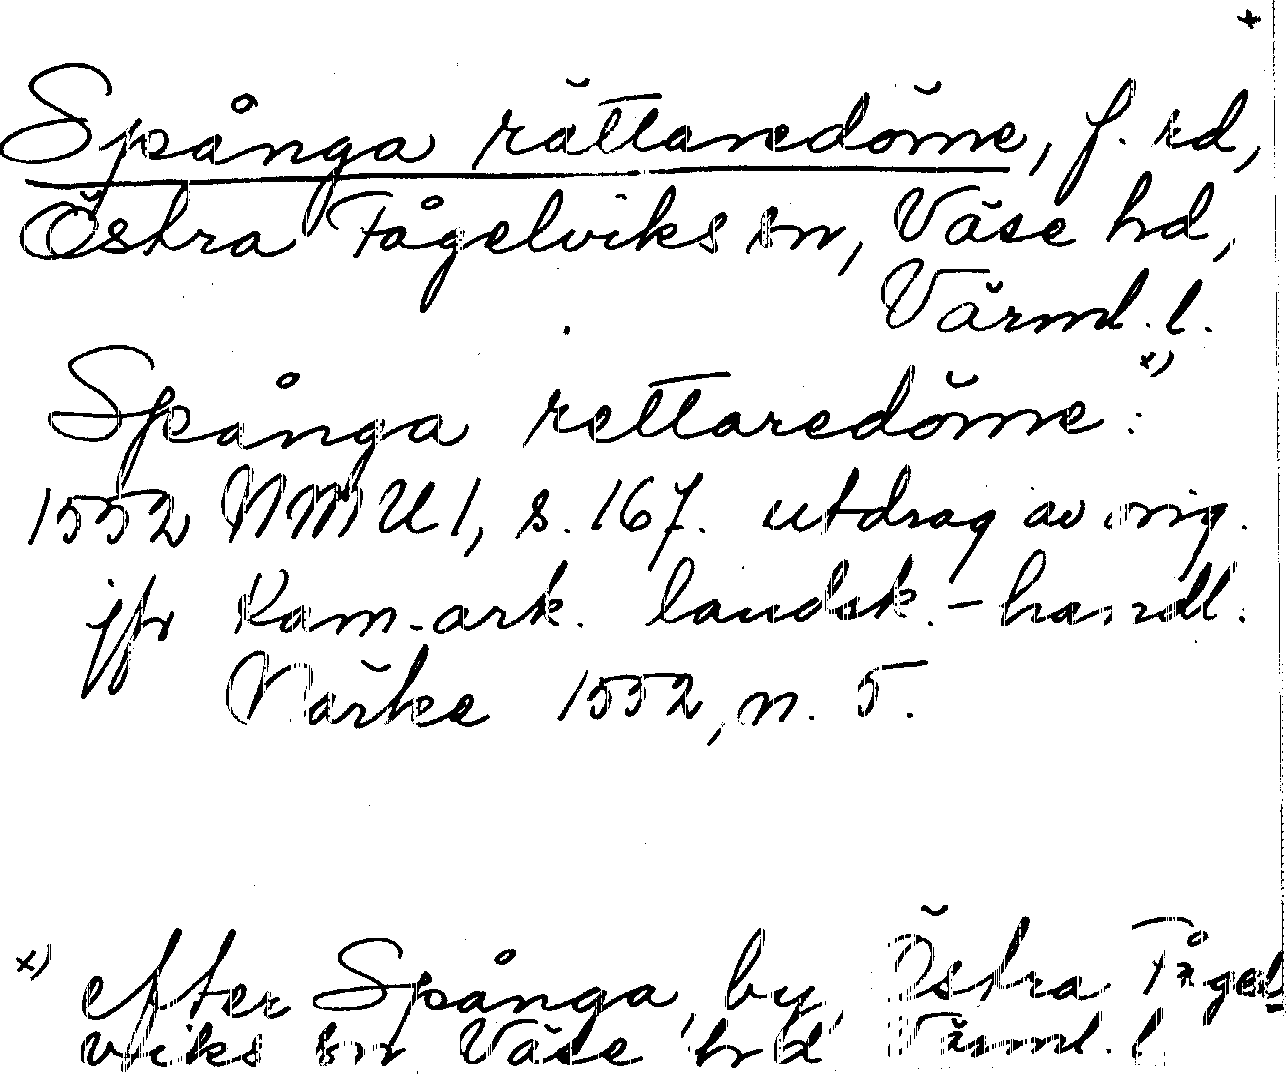 +
Spånga rättaredöme, f. rd,
Östra Fågelviks sn, Väse hd,
Värml. l.
Spånga rettaredöme x):
1552 NMU 1, s. 167. utdrag av orig.
jfr Kam.ark. landsk.-handl.
Närke 1552, n. 5.
x) efter Spånga, by, Östra Fågel-
viks sn Väse hd Värml. l.